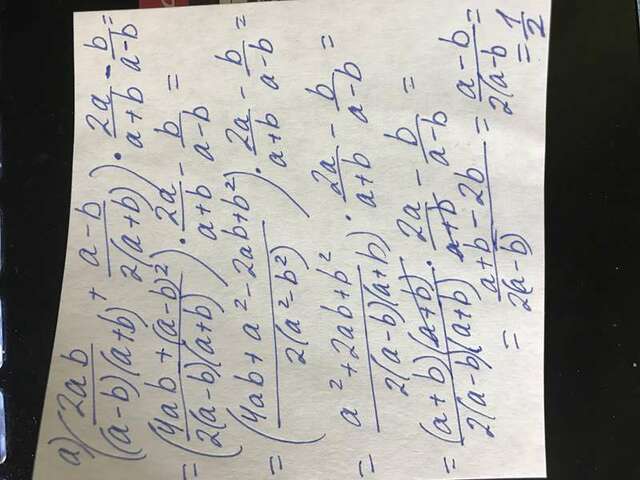 a) (2ab/((a-b)(a+b)) + (a-b)/(2(a+b))) · 2a/(a+b) - b/(a-b) =
= ((4ab + (a-b)²)/(2(a-b)(a+b))) · 2a/(a+b) - b/(a-b) =
= ((4ab + a² - 2ab + b²)/(2(a²-b²))) · 2a/(a+b) - b/(a-b) =
= (a² + 2ab + b²)/(2(a-b)(a+b)) · 2a/(a+b) - b/(a-b) =
= (a+b)(a+b)/(2(a-b)(a+b)) · 2a/(a+b) - b/(a-b) =
= (a+b-2b)/(2(a-b)) = (a-b)/(2(a-b) =
= 1/2